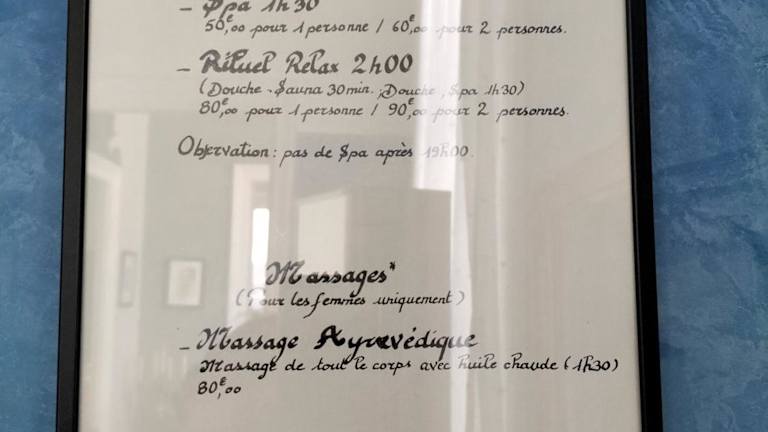 - Spa 1h30
50€,00 pour 1 personne / 60€,00 pour 2 personnes.
- Rituel Relax 2h00
(Douche - Sauna 30min. ; Douche, Spa 1h30)
80€,00 pour 1 personne / 90€,00 pour 2 personnes.
Observation : pas de Spa après 19h00.
Massages*
(Pour les femmes uniquement)
- Massage Ayurvédique
Massage de tout le corps avec huile chaude (1h30)
80€,00